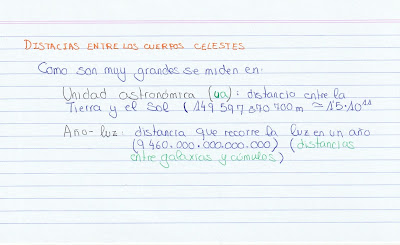 DISTACIAS ENTRE LOS CUERPOS CELESTES
Como son muy grandes se miden en:
Unidad astronómica (ua): distancia entre la
Tierra y el Sol (149 597 870 700 m ≃ 1'5·10¹¹
Año-luz: distancia que recorre la luz en un año
(9 460.000.000.000.000) (distancias
entre galaxias y cúmulos)